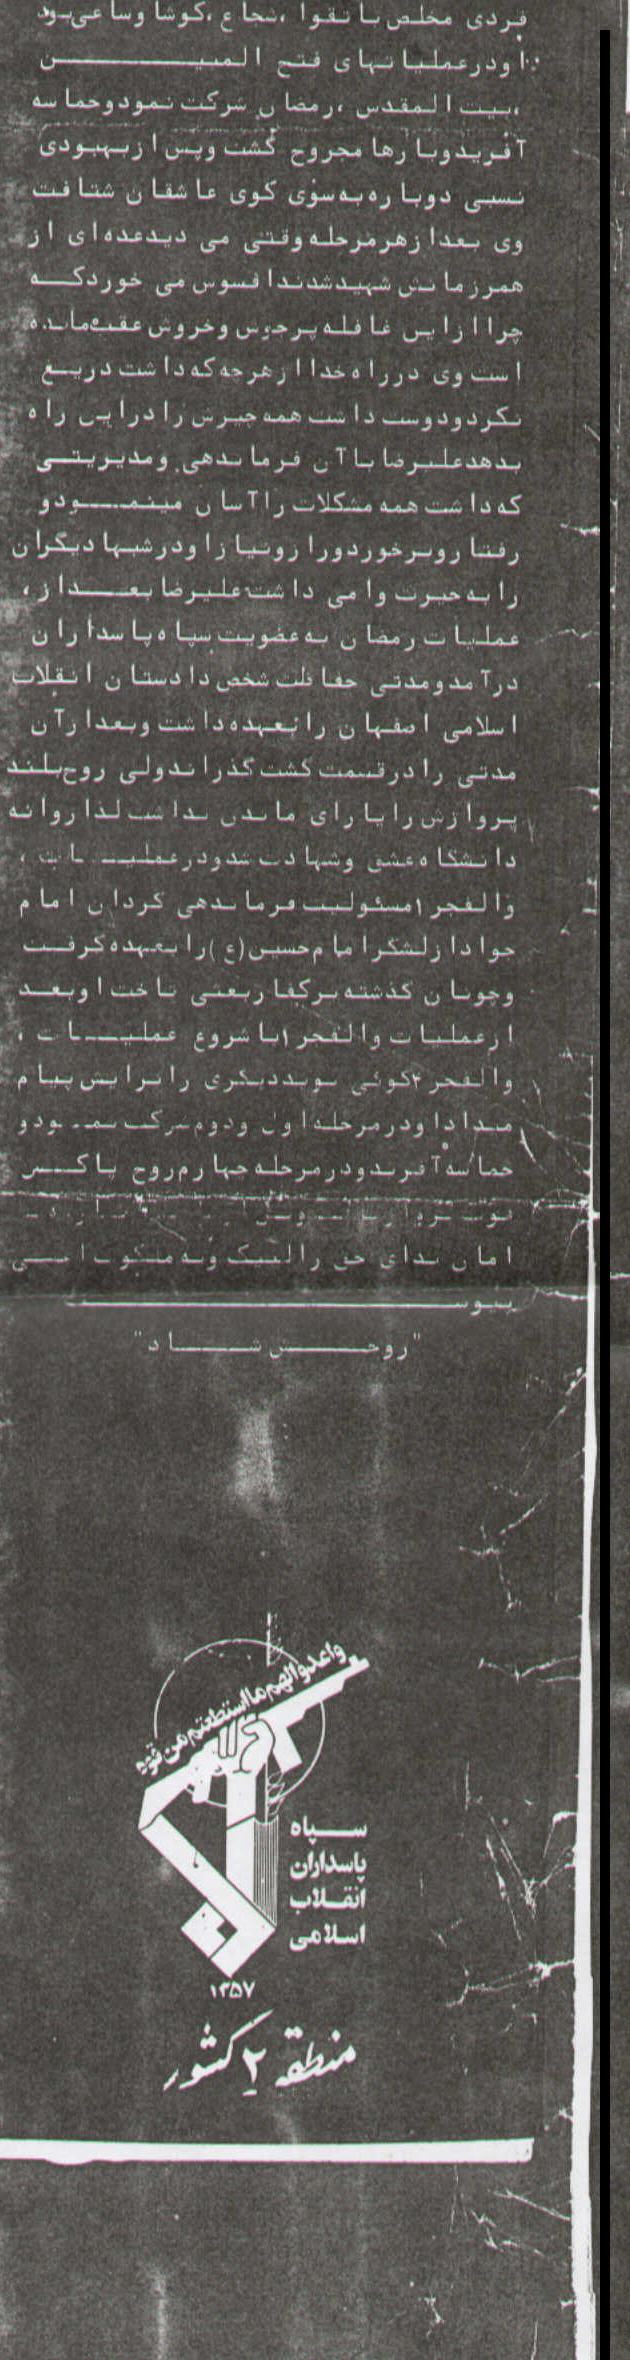 فردی مخلص با تقوا ،شجاع ،کوشا وساعی بود
او در عملیاتهای فتح المبیـن
،بیت المقدس ،رمضان شرکت نمود و حماسه
آفرید و بارها مجروح گشت و پس از بهبودی
نسبی دوباره به سوی کوی عاشقان شتافت
وی بعد از هر مرحله وقتی می دید عده ای از
همرزمانش شهید شدند افسوس می خورد کـه
چرا از این قافله پر جوش و خروش عقب مانده
است وی در راه خدا از هرچه که داشت دریـغ
نکرد و دوست داشت همه چیزش را در این راه
بدهد علیرضا با آن فرماندهی و مدیریتـی
که داشت همه مشکلات را آسان مینمـود و
رفتار و برخورد و راز و نیاز او در شبها دیگران
را به حیرت وا می داشت علیرضا بعـد از ،
عملیات رمضان به عضویت سپاه پاسداران
در آمد و مدتی حفاظت شخص دادستان انقلاب
اسلامی اصفهان را بعهده داشت و بعد از آن
مدتی را در قسمت گشت گذراند ولی روح بلند
پروازش را یارای ماندن نداشت لذا روانه
دانشگاه عشق و شهادت شد و در عملیـات ،
والفجر ۱ مسئولیت فرماندهی گردان امام
جواد از لشگر امام حسین (ع) را بعهده گرفت
و چونان گذشته بر کفار بعثی تاخت او بعد
از عملیات والفجر ۱ با شروع عملیـات ،
والفجر ۴ گوئی نوید دیگری را برایش پیام
میداد او در مرحله اول و دوم شرکت نمـود و
حماسه آفرید و در مرحله چهارم روح پاکـش
امان ندای حق را لبیک و به ملکوت اعـلی
پیوست
"روحـش شـاد"
واعدوا لهم ما استطعتم من قوه
سپاه
پاسداران
انقلاب
اسلامی
۱۳۵۷
منطقه ۲ کشور